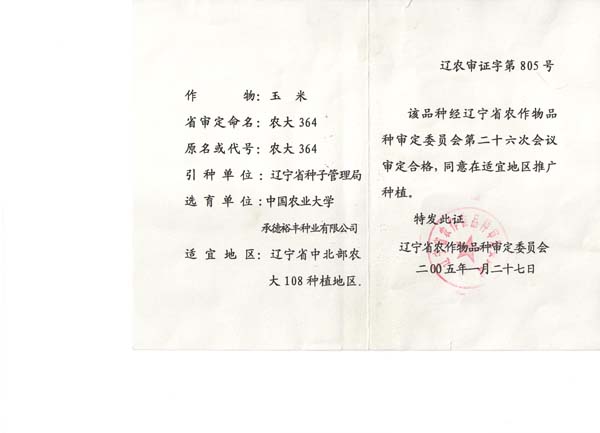 作物：玉米
省审定命名：农大364
原名或代号：农大364
引种单位：辽宁省种子管理局
选育单位：中国农业大学
承德裕丰种业有限公司
适宜地区：辽宁省中北部农
大108种植地区.
辽农审证字第805号
该品种经辽宁省农作物品
种审定委员会第二十六次会议
审定合格，同意在适宜地区推广
种植。
特发此证
辽宁省农作物品种审定委员会
二00五年一月二十七日